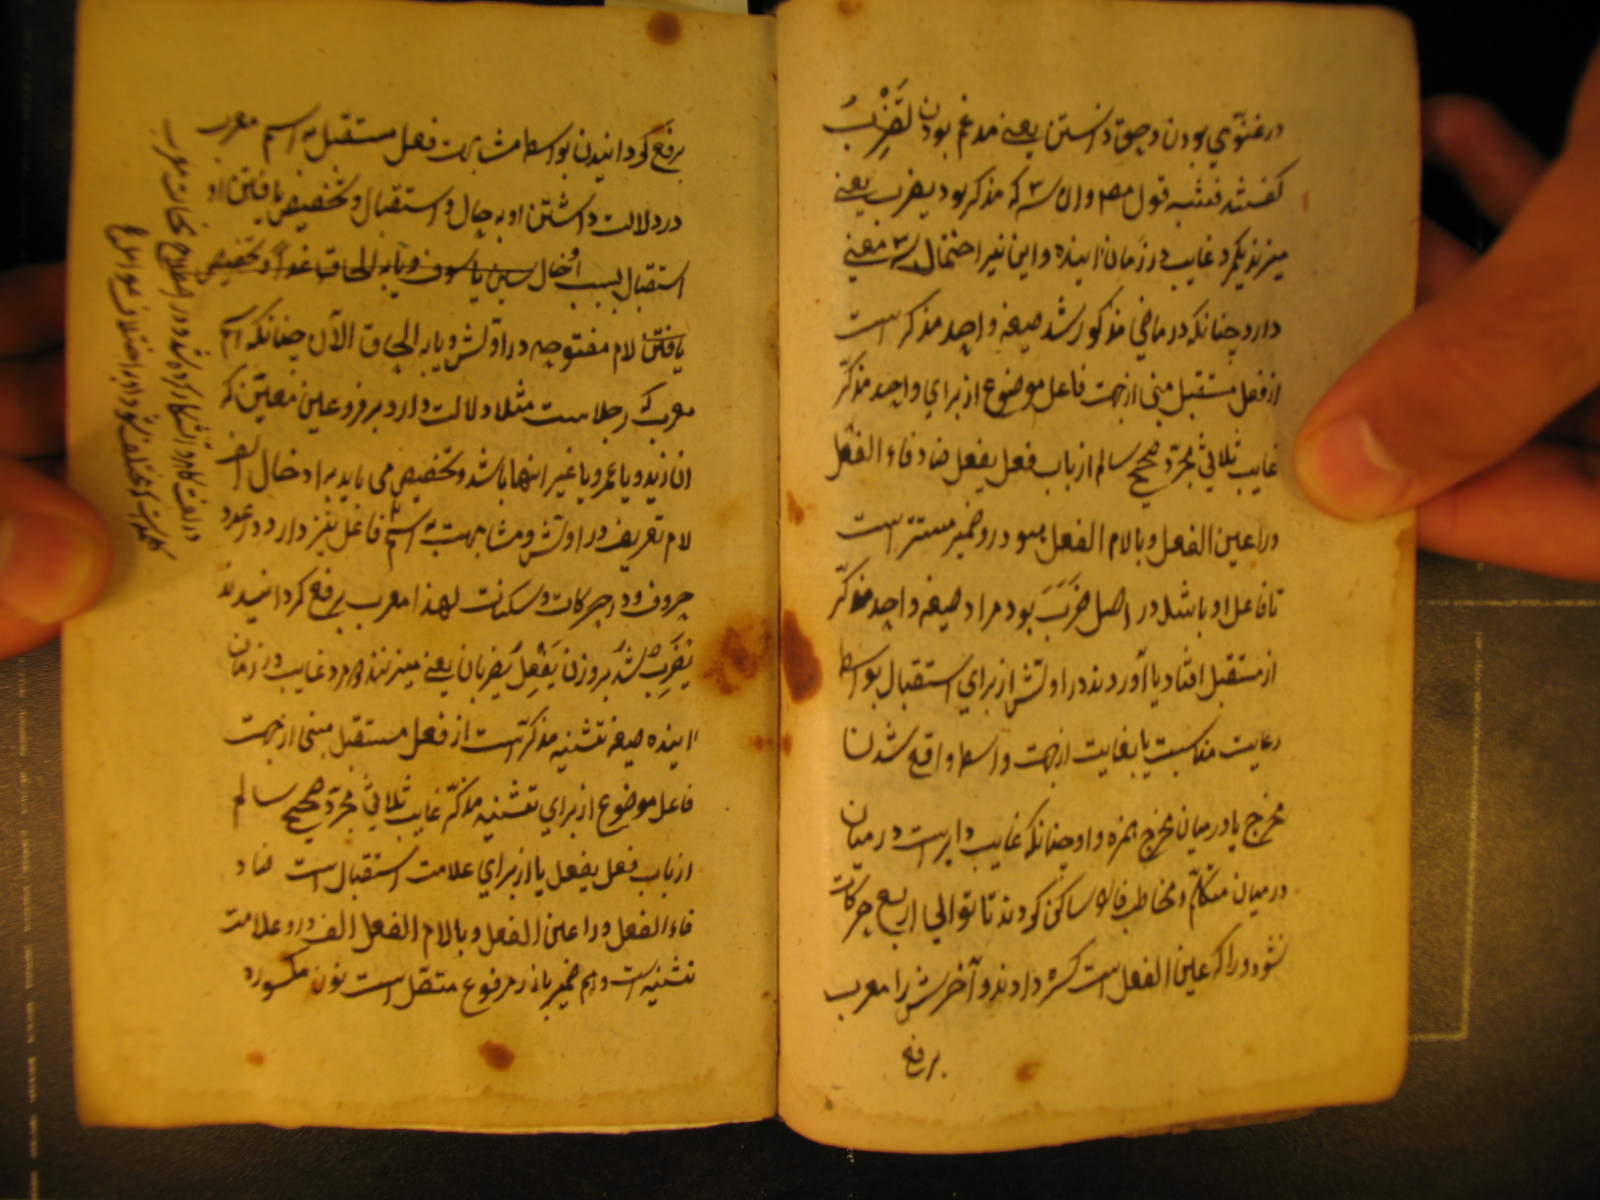 در غنوی بودن وجوق دانستن یعنی مدغم بودن لتضرب
گفتند فتنبه قول مص وان ۳ که مذکر بود یضرب یعنی
میزند یکمرد غایب در زمان اینده و این نیز احتمال ۳ معنی
دارد چنانکه در ماضی مذکور شد صیغه واحد مذکر است
از فعل مستقبل مبنی از جهت فاعل موضوع از برای واحد مذکّر
غایب ثلاثی مجرّد صحیح سالم از باب فعل یفعل ضاد فاء الفعل
و را عین الفعل و با لام الفعل هو درو ضمیر مستتر است
تا فاعل او باشد در اصل ضَرَبَ بود مراد صیغه واحد مذکّر
از مستقبل افتاد یا آوردند در اولش از برای استقبال بواسطه
رعایت مناسبت یا بغایت از جهت واسطه واقع شدن
مخرج یا در میان مخرج همزه و واو چنانکه غایب دایر است در میان
در میان متکلّم و مخاطب فا را ساکن کردند تا توالی اربع حرکات
نشود و را که عین الفعل است کسره دادند و آخرش را معرب
برفع
برفع گردانیدن بواسطه مشابهت فعل مستقبل به اسم معرب
در دلالت داشتن او به حال و استقبال و تخصیص یافتن او
استقبال بسبب ادخال سین یا سوف و یا به الحاق غداً و تخصیص
یافتن لام مفتوحه در اولش و یا به الحاق الآن چنانکه اسم
معرب که رجل است مثلا دلالت دارد بر فرو عین معیّن که
ان زید و یا عمرو یا غیر اینها باشد و تخصیص می یابد به ادخال الف
لام تعریف در اولش و مشابهت به اسم فاعل نیز دارد در عدد
حروف و در حرکات و سکنات لهذا معرب برفع گردانیدند
یَضرِبُ شد بروزن یَفعِلُ یضربان یعنی میزنند دو مرد غایب در زمان
اینده صیغه تثنیه مذکر است از فعل مستقبل مبنی از جهت
فاعل موضوع از برای تثنیه مذکّر غایب ثلاثی مجرّد صحیح سالم
از باب فعل یفعل یا از برای علامت استقبال است ضاد
فاء الفعل و را عین الفعل و با لام الفعل الف درو علامت
تثنیه است و هم ضمیر بارز مرفوع متصل است نون مکسوره
معرب در لغت